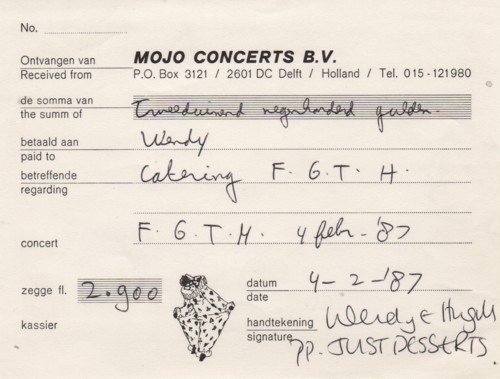 No.
Ontvangen van MOJO CONCERTS B.V.
Received from P.O. Box 3121 / 2601 DC Delft / Holland / Tel. 015-121980
de somma van
the summ of Tweeduizend negenhonderd gulden.
betaald aan Wendy
paid to
betreffende Catering F. G. T. H.
regarding
concert F. G. T. H. 4 febr. '87
zegge fl. 2.900
datum 4-2-'87
date
kassier
handtekening Wendy E
signature pp. JUST DESSERTS